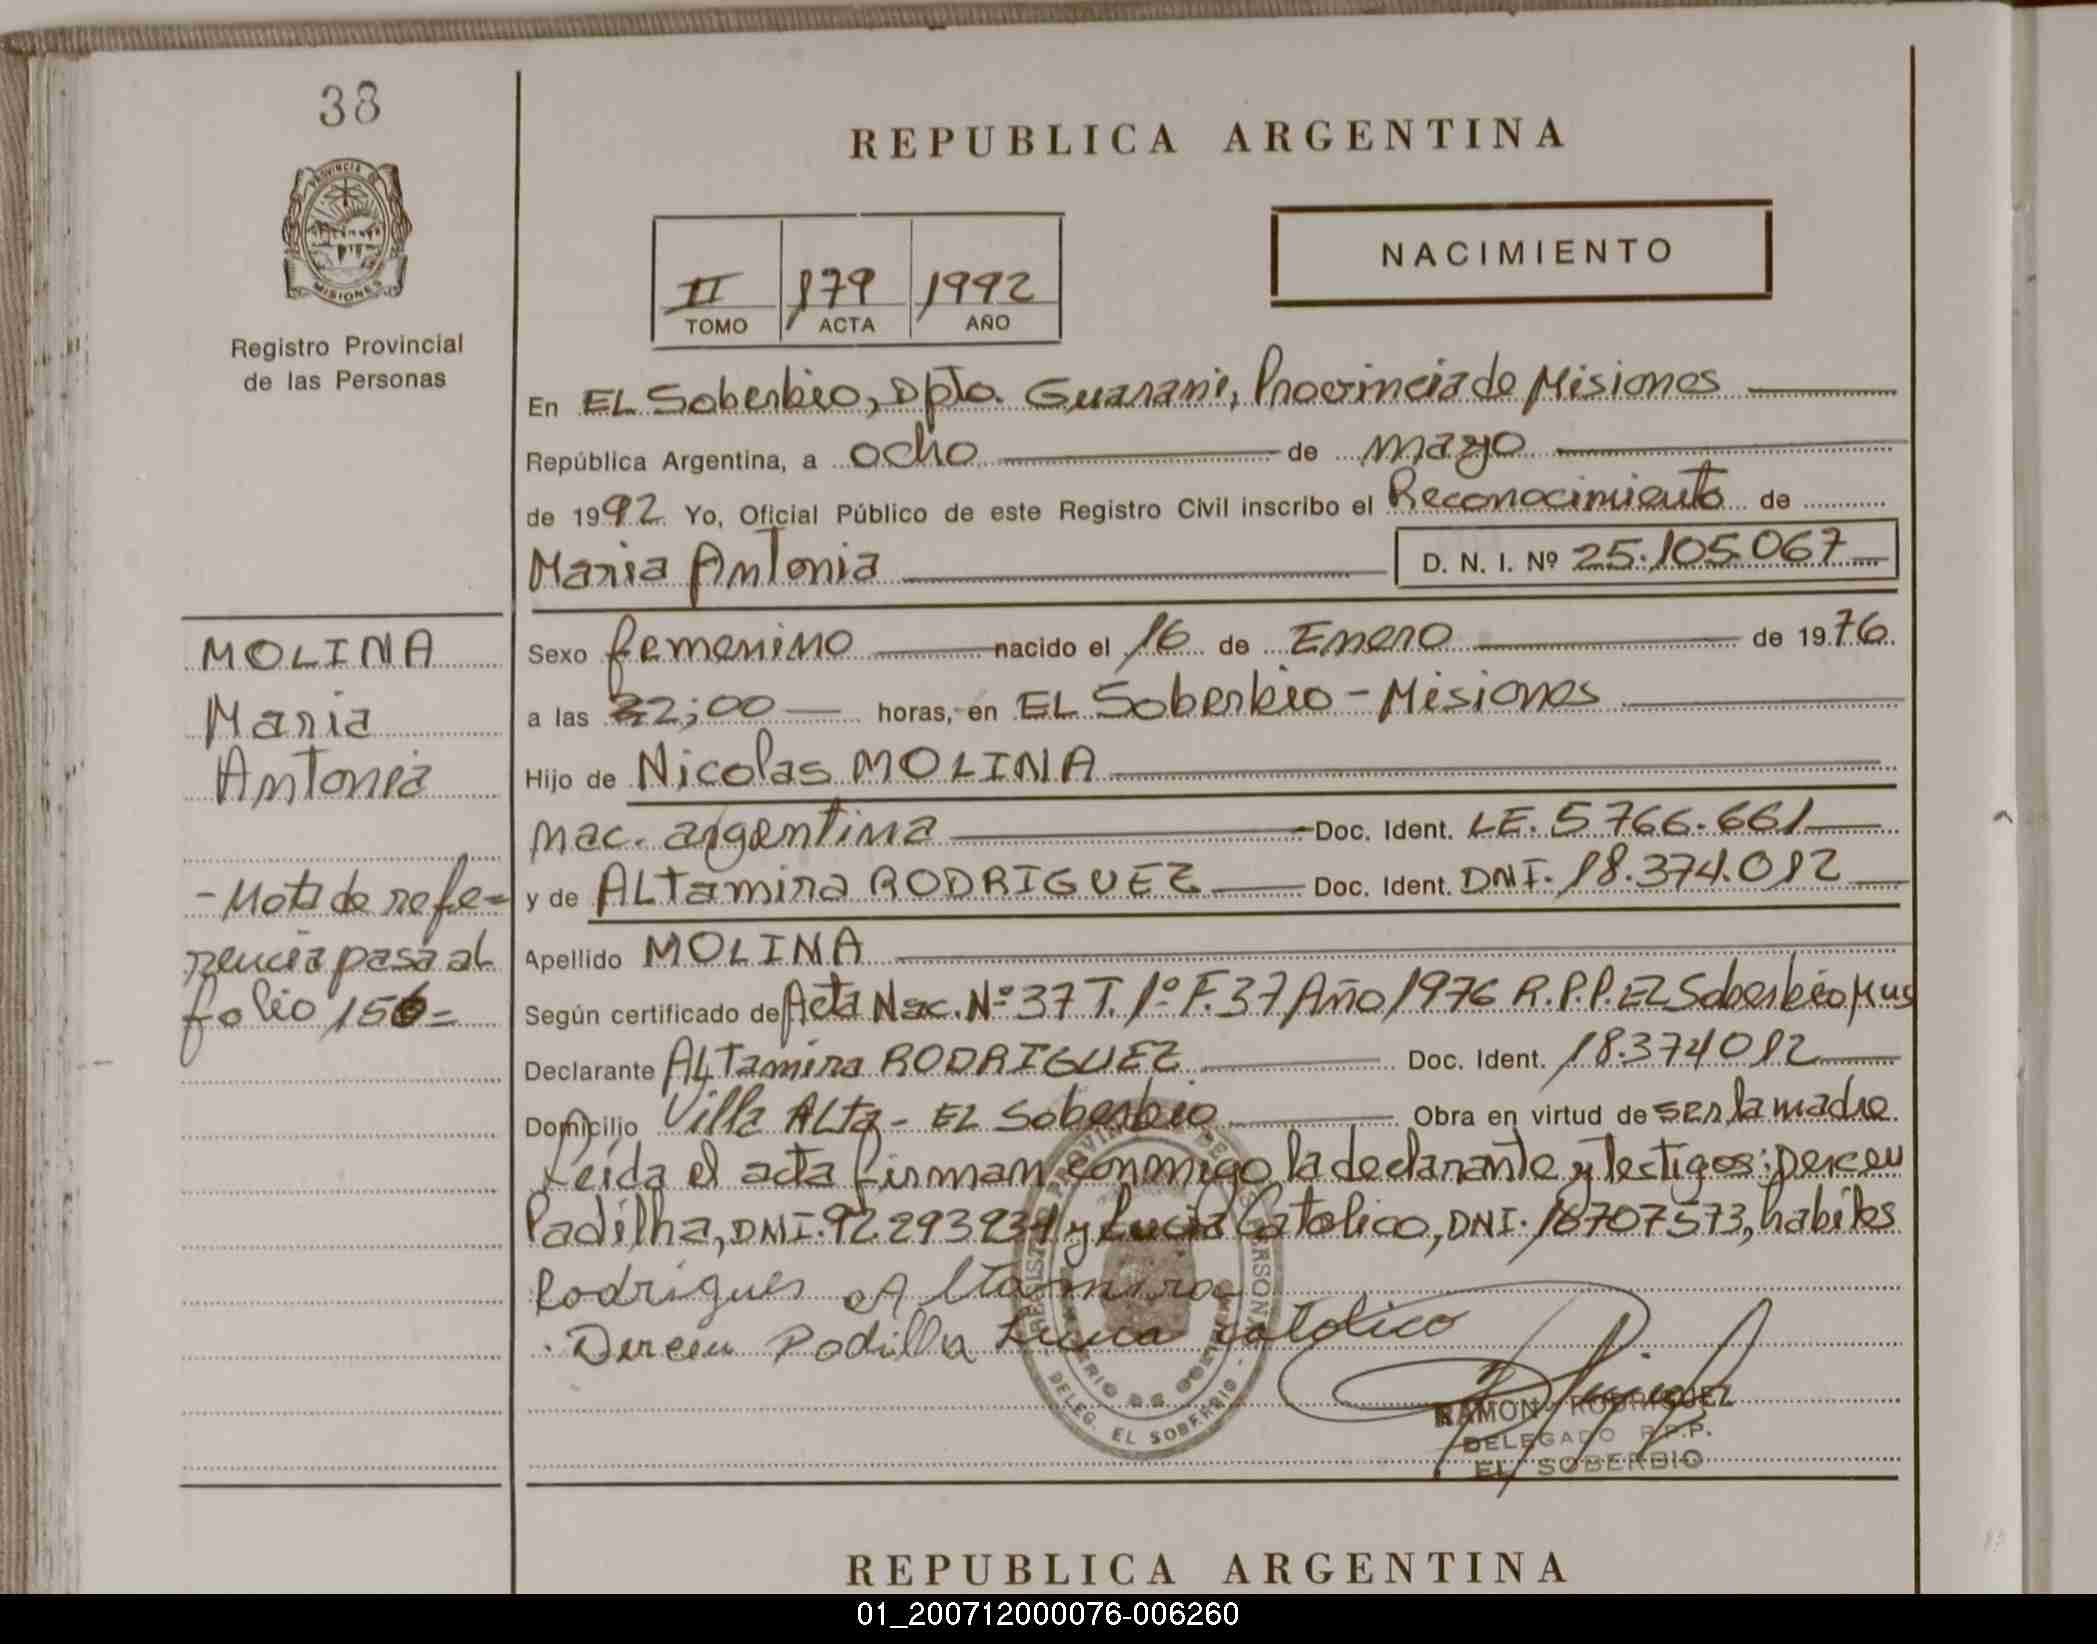 38
REPUBLICA ARGENTINA
PROVINCIA DE
MISIONES
Registro Provincial
de las Personas
NACIMIENTO
II 179 1992
TOMO ACTA AÑO
En EL Soberbio, Dpto. Guarani, Provincia de Misiones
República Argentina, a ocho de mayo
de 1992 Yo, Oficial Público de este Registro Civil inscribo el Reconocimiento de
Maria Antonia D. N. I. Nº 25.105.067
MOLINA
Maria
Antonia
Sexo femenino nacido el 16 de Enero de 1976
a las 22;00 horas, en EL Soberbio - Misiones
Hijo de Nicolas MOLINA
nac. argentina Doc. Ident. LE. 5766.661
y de ALtamira RODRIGUEZ Doc. Ident. DNI. 18.374.012
- Nota de refe=
rencia pasa al
folio 156=
Apellido MOLINA
Según certificado de Acta Nac. Nº 37 T. 1º F. 37 Año 1976 R.P.P. EL Soberbio Mns
Declarante ALTamira RODRIGUEZ Doc. Ident. 18.374012
Domicilio Villa ALta - EL Soberbio Obra en virtud de ser la madre
Leida el acta firman conmigo la declarante y testigos: Derceu
Padilha, DNI. 92.293.234 y Lucia Catolico, DNI. 18707573, habiles
Rodrigues Altamira
Derceu Padilha Lucia Catolico
DELEG. EL SOBERBIO
RAMON RODRIGUEZ
DELEGADO R.P.P.
EL SOBERBIO
REPUBLICA ARGENTINA
01_200712000076-006260